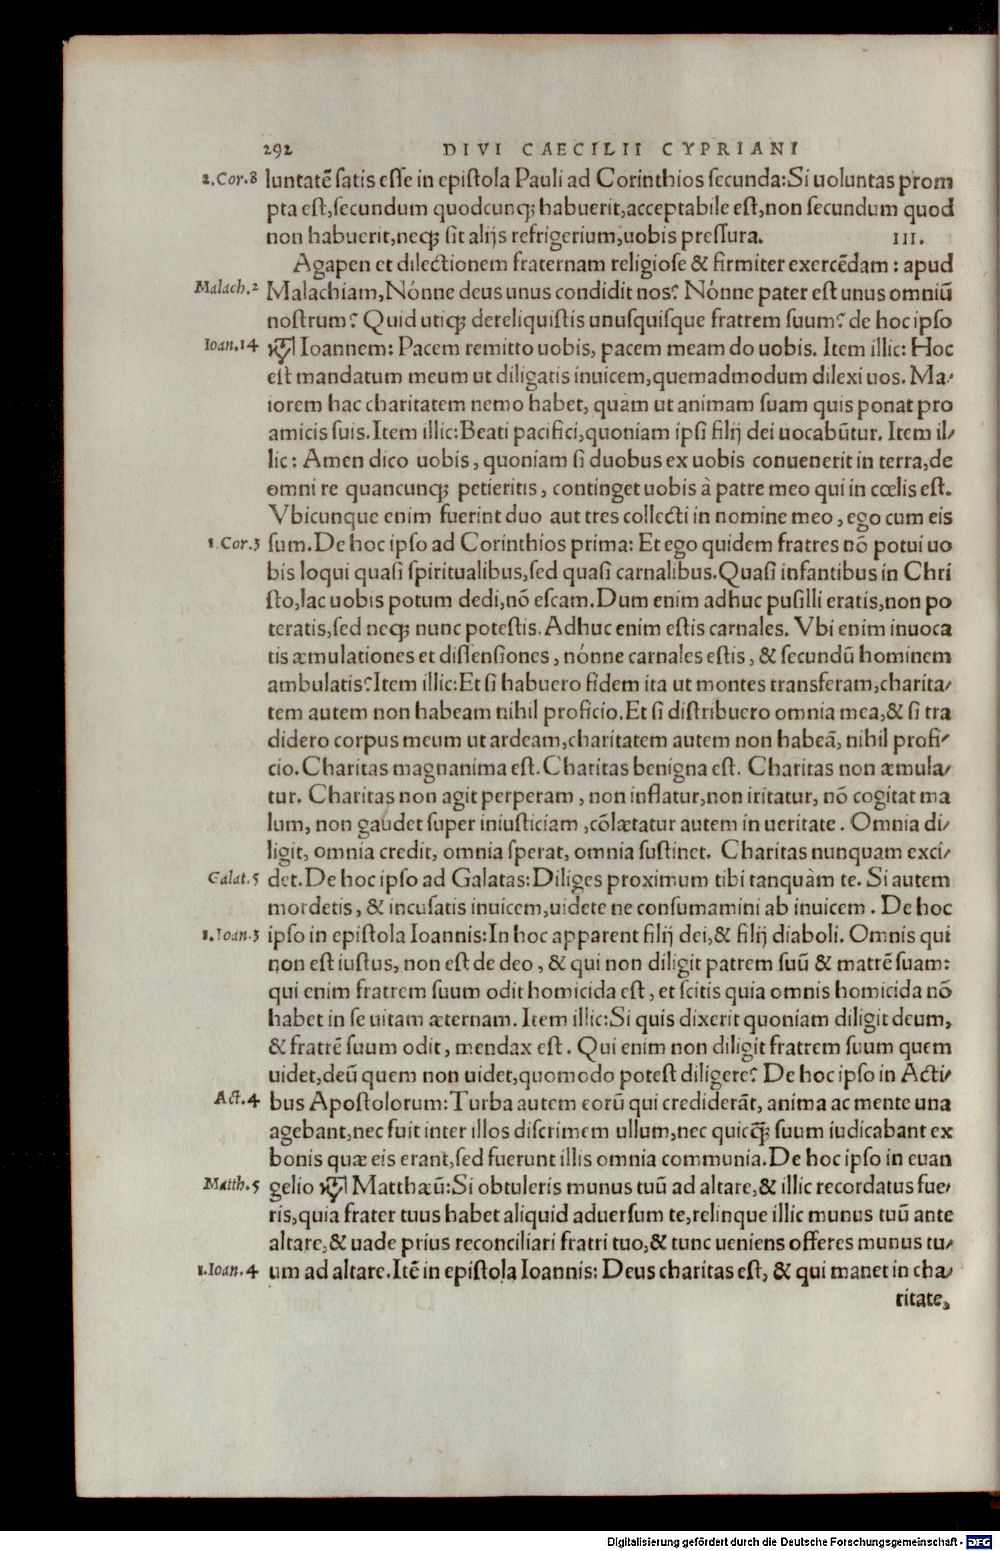 292 DIVI CAECILII CYPRIANI
2.Cor.8 luntatē satis esse in epistola Pauli ad Corinthios secunda:Si uoluntas prom
pta est,secundum quodcunq; habuerit,acceptabile est,non secundum quod
non habuerit,neq; sit alijs refrigerium,uobis pressura. III.
Agapen et dilectionem fraternam religiose & firmiter exercēdam: apud
Malach.2 Malachiam,Nónne deus unus condidit nos? Nónne pater est unus omniū
nostrum? Quid utiq; dereliquistis unusquisque fratrem suum? de hoc ipso
Ioan.14 Ioannem: Pacem remitto uobis, pacem meam do uobis. Item illic: Hoc
est mandatum meum ut diligatis inuicem,quemadmodum dilexi uos. Ma-
iorem hac charitatem nemo habet, quàm ut animam suam quis ponat pro
amicis suis.Item illic:Beati pacifici,quoniam ipsi filij dei uocabūtur. Item il-
lic: Amen dico uobis, quoniam si duobus ex uobis conuenerit in terra,de
omni re quancunq; petieritis, continget uobis à patre meo qui in cœlis est.
Vbicunque enim fuerint duo aut tres collecti in nomine meo, ego cum eis
1.Cor.3 sum.De hoc ipso ad Corinthios prima: Et ego quidem fratres nō potui uo
bis loqui quasi spiritualibus,sed quasi carnalibus.Quasi infantibus in Chri
sto,lac uobis potum dedi,nō escam.Dum enim adhuc pusilli eratis,non po
teratis,sed neq; nunc potestis.Adhuc enim estis carnales. Vbi enim in uoca
tis æmulationes et dissensiones, nónne carnales estis, & secundū hominem
ambulatis?Item illic:Et si habuero fidem ita ut montes transferam,charita-
tem autem non habeam nihil proficio.Et si distribuero omnia mea,& si tra
didero corpus meum ut ardeam,charitatem autem non habeā, nihil profi-
cio.Charitas magnanima est.Charitas benigna est. Charitas non æmula-
tur. Charitas non agit perperam, non inflatur,non iritatur, nō cogitat ma
lum, non gaudet super iniusticiam,cōlætatur autem in ueritate. Omnia di-
ligit, omnia credit, omnia sperat, omnia sustinet. Charitas nunquam exci-
Galat.5 det.De hoc ipso ad Galatas:Diliges proximum tibi tanquàm te. Si autem
mordetis, & incusatis inuicem,uidete ne consumamini ab inuicem. De hoc
1.Ioan.3 ipso in epistola Ioannis:In hoc apparent filij dei,& filij diaboli. Omnis qui
non est iustus, non est de deo, & qui non diligit patrem suū & matrē suam:
qui enim fratrem suum odit homicida est, et scitis quia omnis homicida nō
habet in se uitam æternam. Item illic:Si quis dixerit quoniam diligit deum,
& fratrē suum odit, mendax est. Qui enim non diligit fratrem suum quem
uidet,deū quem non uidet,quomodo potest diligere? De hoc ipso in Acti-
Act.4 bus Apostolorum:Turba autem eorū qui crediderāt, anima ac mente una
agebant,nec fuit inter illos discrimem ullum,nec quicq̄; suum iudicabant ex
bonis quæ eis erant,sed fuerunt illis omnia communia.De hoc ipso in euan
Matth.5 gelio Matthæū:Si obtuleris munus tuū ad altare,& illic recordatus fue-
ris,quia frater tuus habet aliquid aduersum te,relinque illic munus tuū ante
altare,& uade prius reconciliari fratri tuo,& tunc ueniens offeres munus tu-
1.Ioan.4 um ad altare.Itē in epistola Ioannis: Deus charitas est, & qui manet in cha-
ritate,
Digitalisierung gefördert durch die Deutsche Forschungsgemeinschaft - DFG